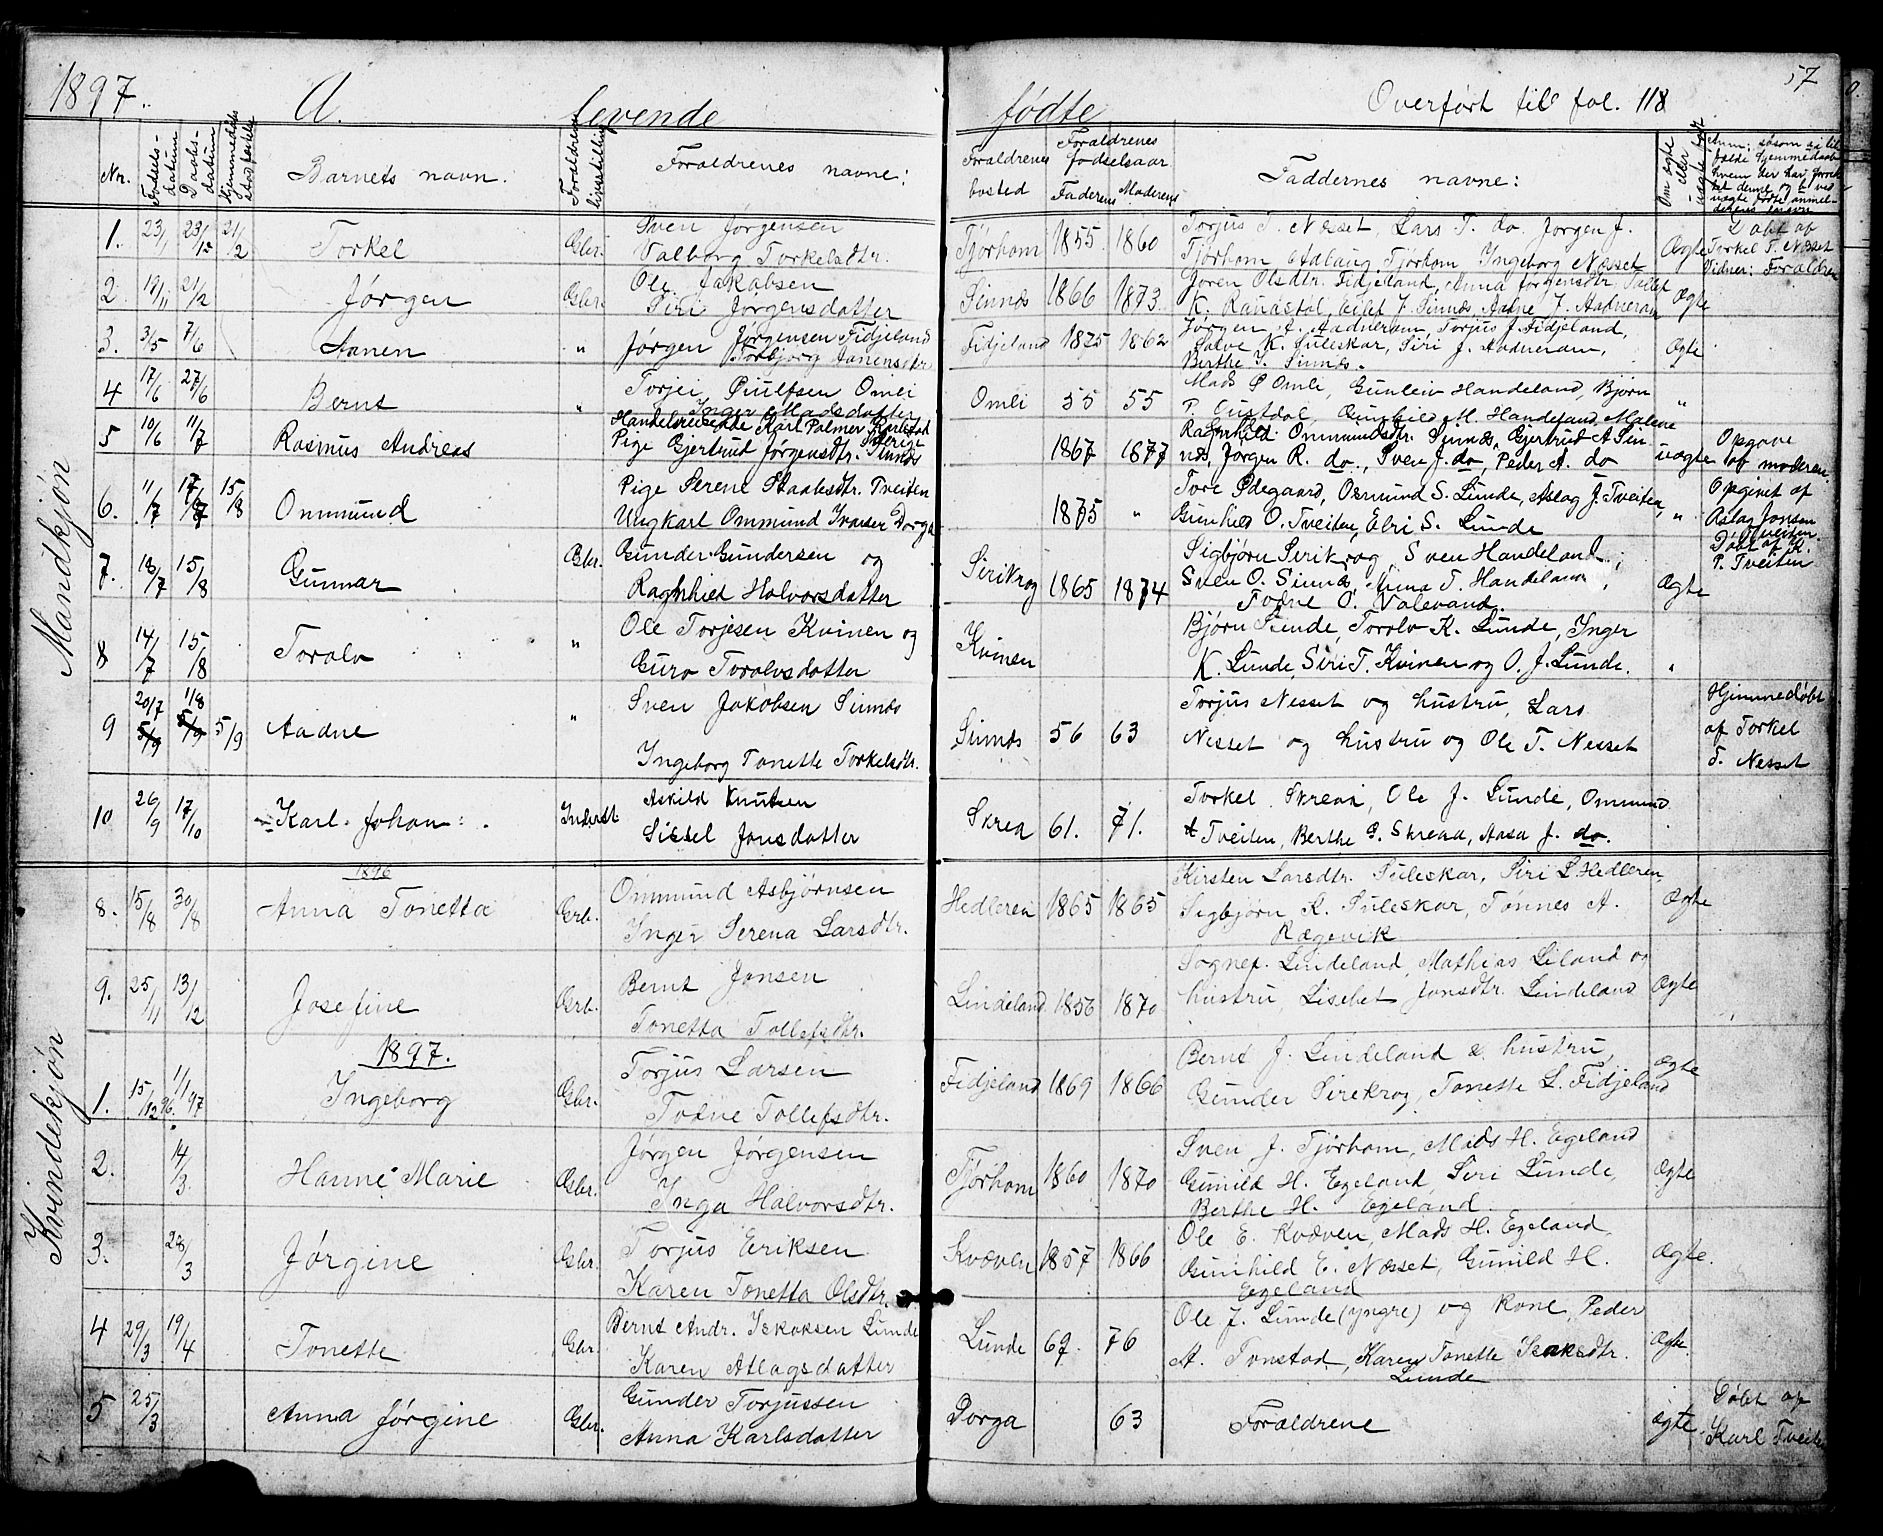 1897. A. levende fødte Overført til fol. 118 57
Nr. Fødsels-datum Daabs-datum Barnets navn. Forældrenes livsstilling Forældrenes navne: Forældrenes bosted Forældrenes fødselsaar Faderens Moderens Faddernes navne: Om ægte eller uægte født
Mandkjøn
1. 23/1 23/12 21/2 Torkel Gbr. Sven Jørgensen
Valborg Torkelsdtr. Tjørhom 1855 1860 Torjus T. Nesset, Lars T. do, Jørgen J.
Tjørhom Adlaug Tjørhom Ingeborg Nesset Ægte Døbt af Torkel T. Nesset Vidner: Forældrene
2. 19/11 21/2 Jørgen Gbr. Ole Jakobsen
Siri Jørgensdatter Sinnes 1866 1873. Jøren Olsdtr. Fidjeland, Anna Jørgensdtr.
K. Sinnes, Aadne J. Aadneram Ægte
3. 3/5 7/6 Aanen " Jørgen Jørgensen Fidjeland
Torbjorg Aanensdtr Fidjeland 1825 1862 Jørgen A. Aadneram, Torjus J. Fidjeland,
Salve K. Suleskar, Siri J. Aadneram,
Berthe J. Sinnes. Ægte
4 17/6 27/6 Bernt " Torjei Omli
Inger Madsdatter Omli 55 55 Mads P Omli, Gunleiv Handeland, Bjørn
P. Gunhild M. Handeland, Malene "
5 10/6 11/7 Rasmus Andreas Handelsreisende Karl Palmer Karlstad Sverige
Pige Gjertrud Jørgensdtr. Sinnes 1867 1877 Ragnhild Ommundsdtr. Sinnes, Gjertrud A Sin
nes, Jørgen R. do., Sven J. do, Peder A. do uægte Opgave af moderen
6. 11/7 15/8 Ommund Pige Serene Tveiten
Ungkarl Ommund Ivarsen Dorga 1875 " Tore Ødegaard, Osmund S. Lunde, Aslag J. Tveiten,
Gunhild O. Tveiten, Elri S. Lunde " Opgivet af Aslag Jonsen Tveiten.
7. 18/7 15/8 Gunnar Gbr. Gunder Gundersen og
Ragnhild Halvorsdatter Serikrog 1865 1874 Sigbjørn Serikrog, Sven Handeland,
Sven O. Sinnes, Anna T. Handeland,
Todne O. Valevand. Ægte Døbt af K. P. Tveiten
8 14/7 15/8 Toralv " Ole Torjesen Kvinen og
Guro Toralvsdatter Kvinen Bjørn Lunde, Toralv K. Lunde, Inger
K. Lunde, Siri T. Kvinen og O. J. Lunde. "
9 20/7 5/9 1/8 5/9 5/9 Aadne " Sven Jakobsen Sinnes
Ingeborg Tonette Torkelsdtr. Sinnes 56 63 Torjus Nesset og hustru, Lars
Nesset og hustru og Ole T. Nesset Hjemmedøbt af Torkel T. Nesset
10 26/9 17/10 Karl Johan Inderst Askild Knutsen
Sissel Jonsdatter Skrea 61. 71. Torkel Skrea, Ole J. Lunde, Ommund
A Tveiten, Berthe G. Skreaa, Aasa J. do.
Kvindekjøn
1896
8. 15/8 30/8 Anna Tonetta Grb. Ommund Asbjørnsen
Inger Serena Larsdtr. Hedleren 1865 1865 Kirsten Larsdtr. Suleskar, Siri L. Hedleren,
Sigbjørn K. Suleskar, Tønnes A.
Rægevik Ægte
9. 25/11 13/12 Josefine Grb. Bernt Jonsen
Tonetta Tollefsdtr. Lindeland 1856 1870 Lindeland, Mathias Liland og
hustru, Lisebet Jonsdtr. Lindeland Ægte
1897.
1. 15/12 96. 1/1 97 Ingeborg Gbr. Torjus Larsen
Todne Tollefsdtr. Fidjeland 1869 1866 Bernt J. Lindeland & hustru,
Gunder Sirekrog, Tonette L. Fidjeland Ægte
2. 14/3. Hanne Marie Gbr. Jørgen Jørgensen
Inga Halvorsdtr. Tjørhom 1860 1870 Sven J. Tjørhom, Mads H. Egeland
Gunild H. Egeland, Siri Lunde,
Berthe H. Egeland. Ægte
3. 28/3 Jørgine Gbr. Torjus Eriksen
Karen Tonetta Olsdtr. Kvæven 1857 1866 Ole E. Kvæven, Mads H. Egeland,
Gunhild E. Næsset, Gunild H.
Egeland Ægte.
4 29/3 19/4 Tonette Gbr. Bernt Andr. Isaksen Lunde
Karen Atlagsdatter Lunde 67. 76 Ole J. Lunde (yngre) og kone, Peder
A. Tonstad, Karen Tonette Isaksdtr.
Lunde Ægte.
5 25/3 Anna Jørgine Gbr. Gunder Torjussen
Anna Karlsdatter Dorga 63 Forældrene ægte. Døbt af Karl Tveiten